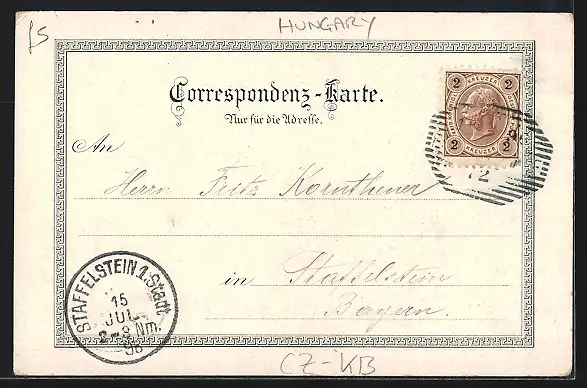 HUNGARY
Correspondenz-Karte.
Nur für die Adresse.
An
Herrn Fritz Kornthener
in Staffelstein
Bayern.
2 KREUZER 2
2 KREUZER 2
12
STAFFELSTEIN 1. Stadt.
15
JUL.
2-3 Nm.
98
CZ-KB